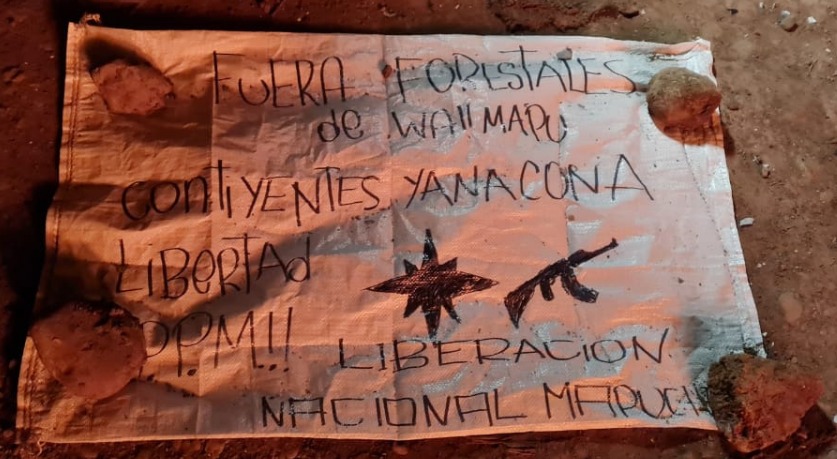 FUERA FORESTALES
de WAllMAPU
CONTIYENTES YANACONA
LIBERTAd
PPM!!
LIBERACION
NACIONAL MAPUCH